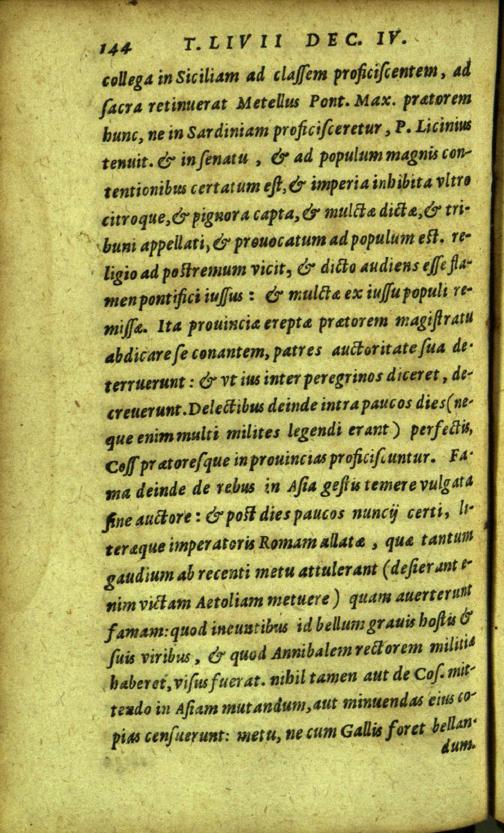 144 T. LIVII DEC. IV.
collega in Siciliam ad claſſem proficiſcentem, ad
ſacra retinuerat Metellus Pont. Max. prætorem
hunc, ne in Sardiniam proficiſceretur, P. Licinius
tenuit. & in ſenatu, & ad populum magnis con-
tentionibus certatum eſt, & imperia inhibita vltro
citroque, & pignora capta, & mulctæ dictæ, & tri-
buni appellati, & prouocatum ad populum eſt. re-
ligio ad poſtremum vicit, & dicto audiens eſſe fla-
men pontifici iuſſus: & mulctæ ex iuſſu populi re-
miſſæ. Ita prouinciæ ereptæ prætorem magiſtratu
abdicare ſe conantem, patres auctoritate ſua de-
terruerunt: & vt ius inter peregrinos diceret, de-
creuerunt. Delectibus deinde intra paucos dies (ne-
que enim multi milites legendi erant) perfectis,
Coſſ prætoreſque in prouincias proficiſcuntur. Fa-
ma deinde de rebus in Aſia geſtis temere vulgata
ſine auctore: & poſt dies paucos nuncij certi, li-
teræque imperatoris Romam allatæ, quæ tantum
gaudium ab recenti metu attulerant (deſierant e-
nim victam Aetoliam metuere) quam auerterunt
famam: quod ineuntibus id bellum grauis hoſtis &
ſuis viribus, & quod Annibalem rectorem militiæ
haberet, viſus fuerat. nihil tamen aut de Coſ. mit-
tendo in Aſiam mutandum, aut minuendas eius co-
pias cenſuerunt: metu, ne cum Gallis foret bellan-
dum.